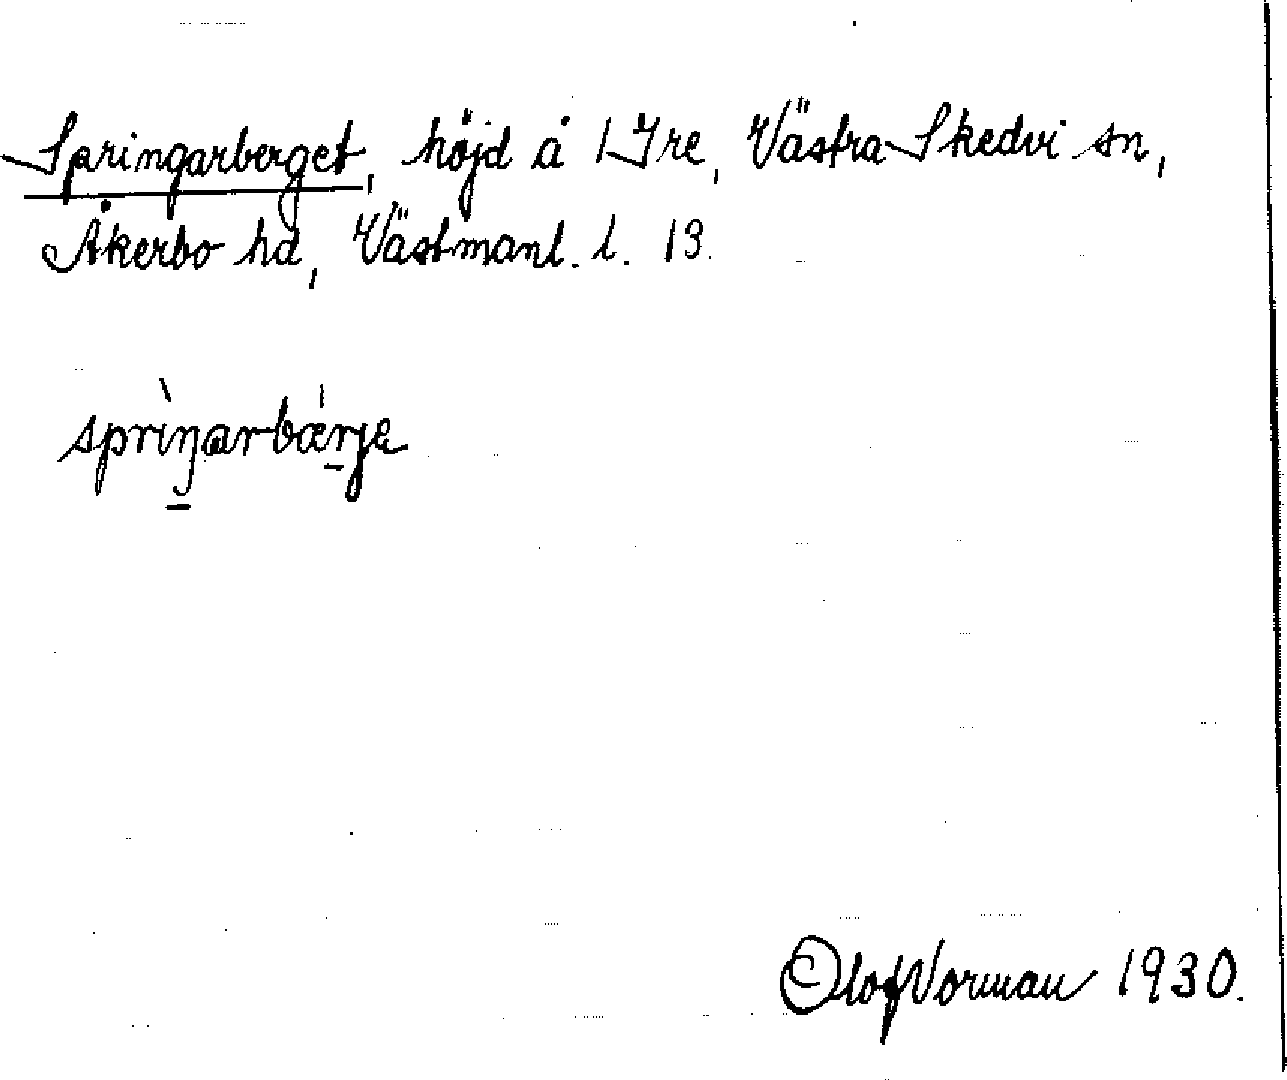 Springarberget, höjd å Yre, Västra Skedvi sn,
Åkerbo hd, Västmanl. l. 13.
sprìŋarbǽrje
Olof Vorman 1930.